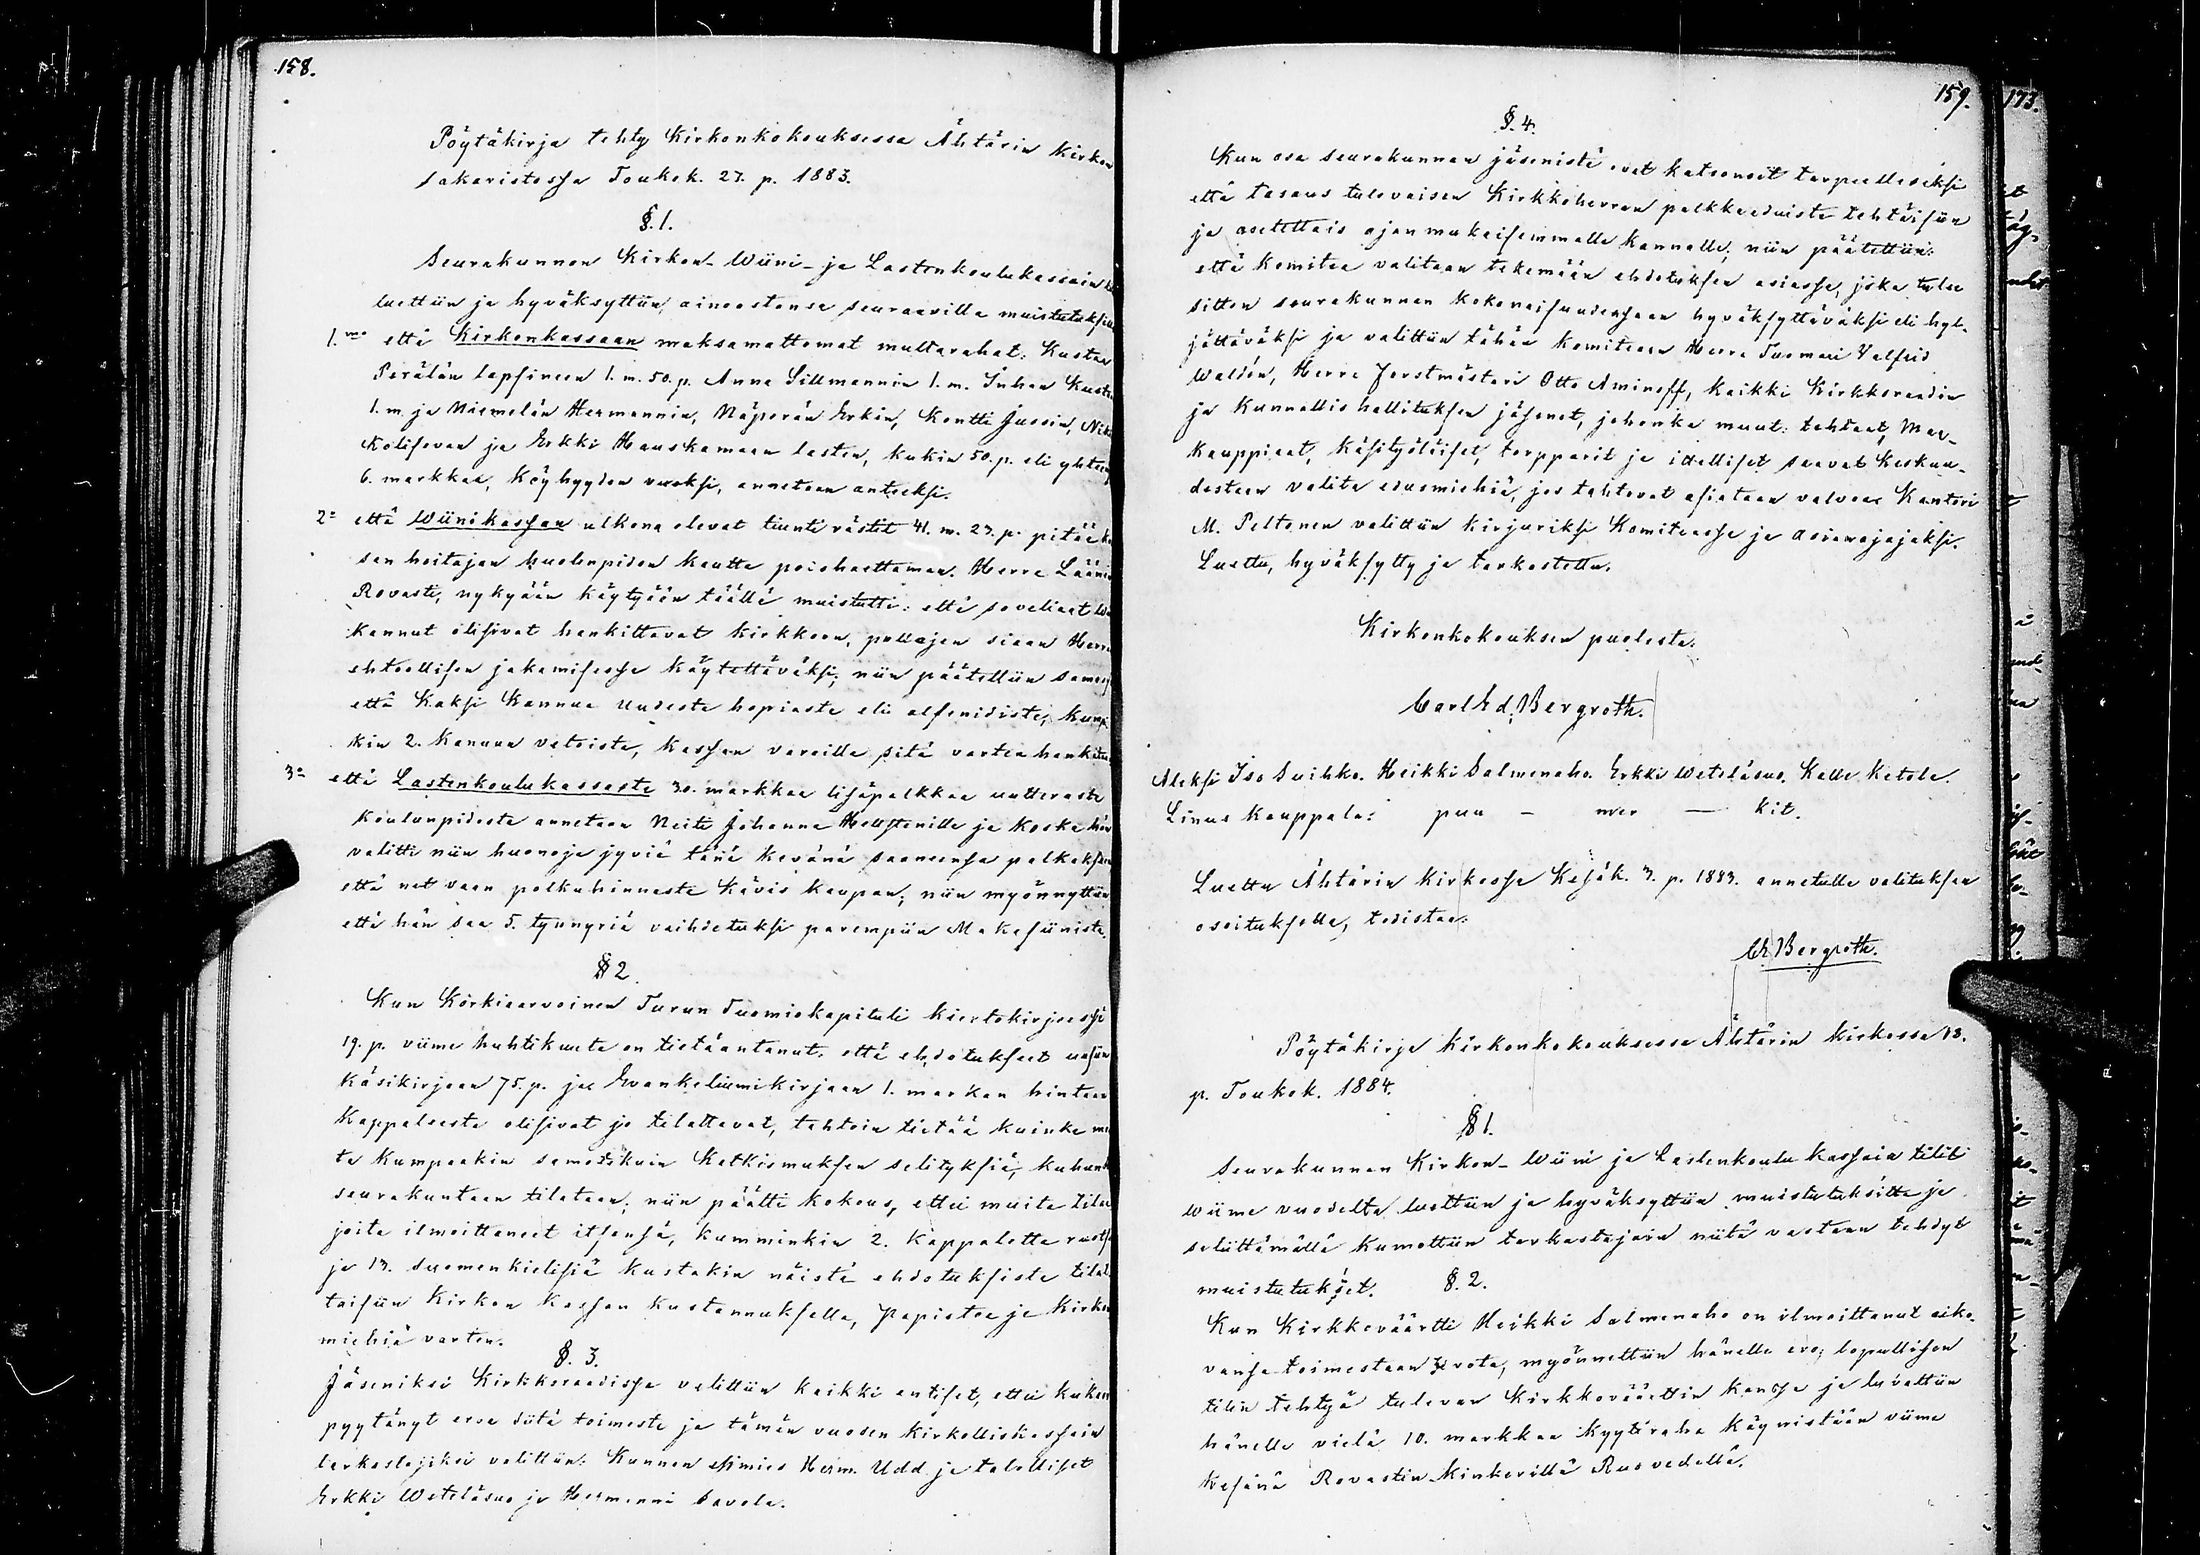 158.
Pöytäkirja tehty Kirkonkokouksessa Ähtärin Kirkon
sakaristossa Toukok. 27. p. 1883.
§. 1.
Seurakunnan Kirkon- Wiini- ja Lastenkoulukassain
luettiin ja hyväksyttiin, ainoastansa seuraavilla muistutuksilla
1.mo että Kirkonkassaan maksamattomat multarahat: Kustaa
Perälän lapsineen 1. m. 50. p. Anna Sillmannin 1. m. Juhan Kustaa
1. m. ja Niemelän Hermannin, Näperän Erkin, Kontti Jussin,
Kolisevan ja Erkki Hauskamaan lasten, kukin 50. p. eli yhteensä
6. markkaa, Köyhyyden vuoksi, annetaan anteeksi.
2o että Wiinikassan ulkona olevat tiunti rästit 41. m. 23. p. pitää
sen hoitajan huolenpidon kautta poishaettaman. Herra Läänin
Rovasti, nykyään käytyään täällä muistutti: että soveliaat
Kannut olisivat hankittavat kirkkoon, pullojen siaan Herran
ehtoollisen jakamisessa käytettäväksi; niin päätettiin samassa
että Kaksi Kannua uudesta hopiasta eli alfenidista, kumpi
kin 2. Kannun vetoista, kassan varoilla sitä varten hankitaan
3o että Lastenkoulukassasta 30. markkaa lisäpalkkaa uutterasta
Koulunpidosta annetaan Neiti Johanna Hellstenille ja koska hän
valitti niin huonoja jyviä tänä keväänä saaneensa palkaksensa
että net vaan polkuhinnasta kävis kaupan; niin myönnyttiin
että hän saa 5. tynnyriä vaihdetuksi parempiin Makasiinista.
§ 2
Kun Korkiaarvoinen Turun Tuomiokapituli kiertokirjeessä
19. p. viime huhtikuuta on tietäantanut, että ehdotukset uusiin
Käsikirjaan 75. p. ja Evankeliumikirjaan 1. markan hintaan
Kappaleesta olisivat jo tilattavat, tahtoin tietää kuinka mon
ta kumpaakin samatikuin Katkismuksen selityksiä, kuhunkin
seurakuntaan tilataan; niin päätti kokous, ettei muita tilaa
joita ilmoittaneet itsensä, kumminkin 2. Kappaletta
ja 13. suomenkielisiä kustakin näistä ehdotuksista tilat
taisiin Kirkon Kassan kustannuksella, Papiston ja Kirkon
miehiä varten.
§. 3.
Jäseniksi Kirkkoraadissa valittiin kaikki entiset, ettei kukaan
pyytänyt eroa siitä toimesta ja tämän vuoden Kirkolliskassain
tarkastajiksi valittiin: Kunnan esimies Herm. Udd ja talolliset
Erkki Weteläsuo ja Hermanni Savola.
159.
§. 4.
Kun osa seurakunnan jäsenistä ovat katsoneet tarpeelliseksi
että tasaus tulevaisen Kirkkoherran palkkaeduista tehtäisiin
ja asetettais ajanmukaisemmalle kannalle; niin päätettiin:
että komitea valitaan tekemään ehdotuksen asiassa, joka tulee
sitten seurakunnan kokonaisuudessaan hyväksyttäväksi eli hyl-
jättäväksi ja valittiin tähän komiteaan Herra Tuomari Valfrid
Waldén, Herra Forstmästari Otto Aminoff, kaikki Kirkkoraadin
ja Kunnallishallituksen jäsenet, johonka muut: tehtaat, Maa-
Kauppiaat, Käsityöläiset, torpparit ja itselliset saavat keskuu-
destaan valita edusmiehiä, jos tahtovat asiataan valvoa. Kanttori
M. Peltonen valittiin kirjuriksi Komiteassa ja asianajajaksi.
Luettu, hyväksytty ja tarkastettu.
Kirkonkokouksen puolesta.
Carl Ed. Bergroth.
Aleksi Iso Suihko. Heikki Salmenaho. Erkki Weteläsuo. Kalle Ketola.
Linus Kauppala: puu – mer — kit.
Luettu Ähtärin kirkossa Kesäk. 3. p. 1883. annetulle valituksen
osoituksella, todistaa:
CE Bergroth.
Pöytäkirja kirkonkokouksessa Ähtärin kirkossa 18.
p. Toukok. 1884.
§ 1.
Seurakunnan Kirkon- Wiini ja Lastenkoulu kassain tilit
wiime vuodelta luettiin ja hyväksyttiin muistutuksitta ja
selittämällä kumottiin tarkastajain niitä vastaan tehdyt
muistutukset.
§. 2.
Kun Kirkkoväärtti Heikki Salmenaho on ilmoittanut aiko-
vansa toimestaan erota, myönnettiin hänelle ero; lopullisen
tilin tehtyä tulevan Kirkkoväärttin kanssa ja luvattiin
hänelle vielä 10. markkaa kyytiraha käynnistään viime
kesänä Rovastin kinkerillä Ruovedellä.
173.